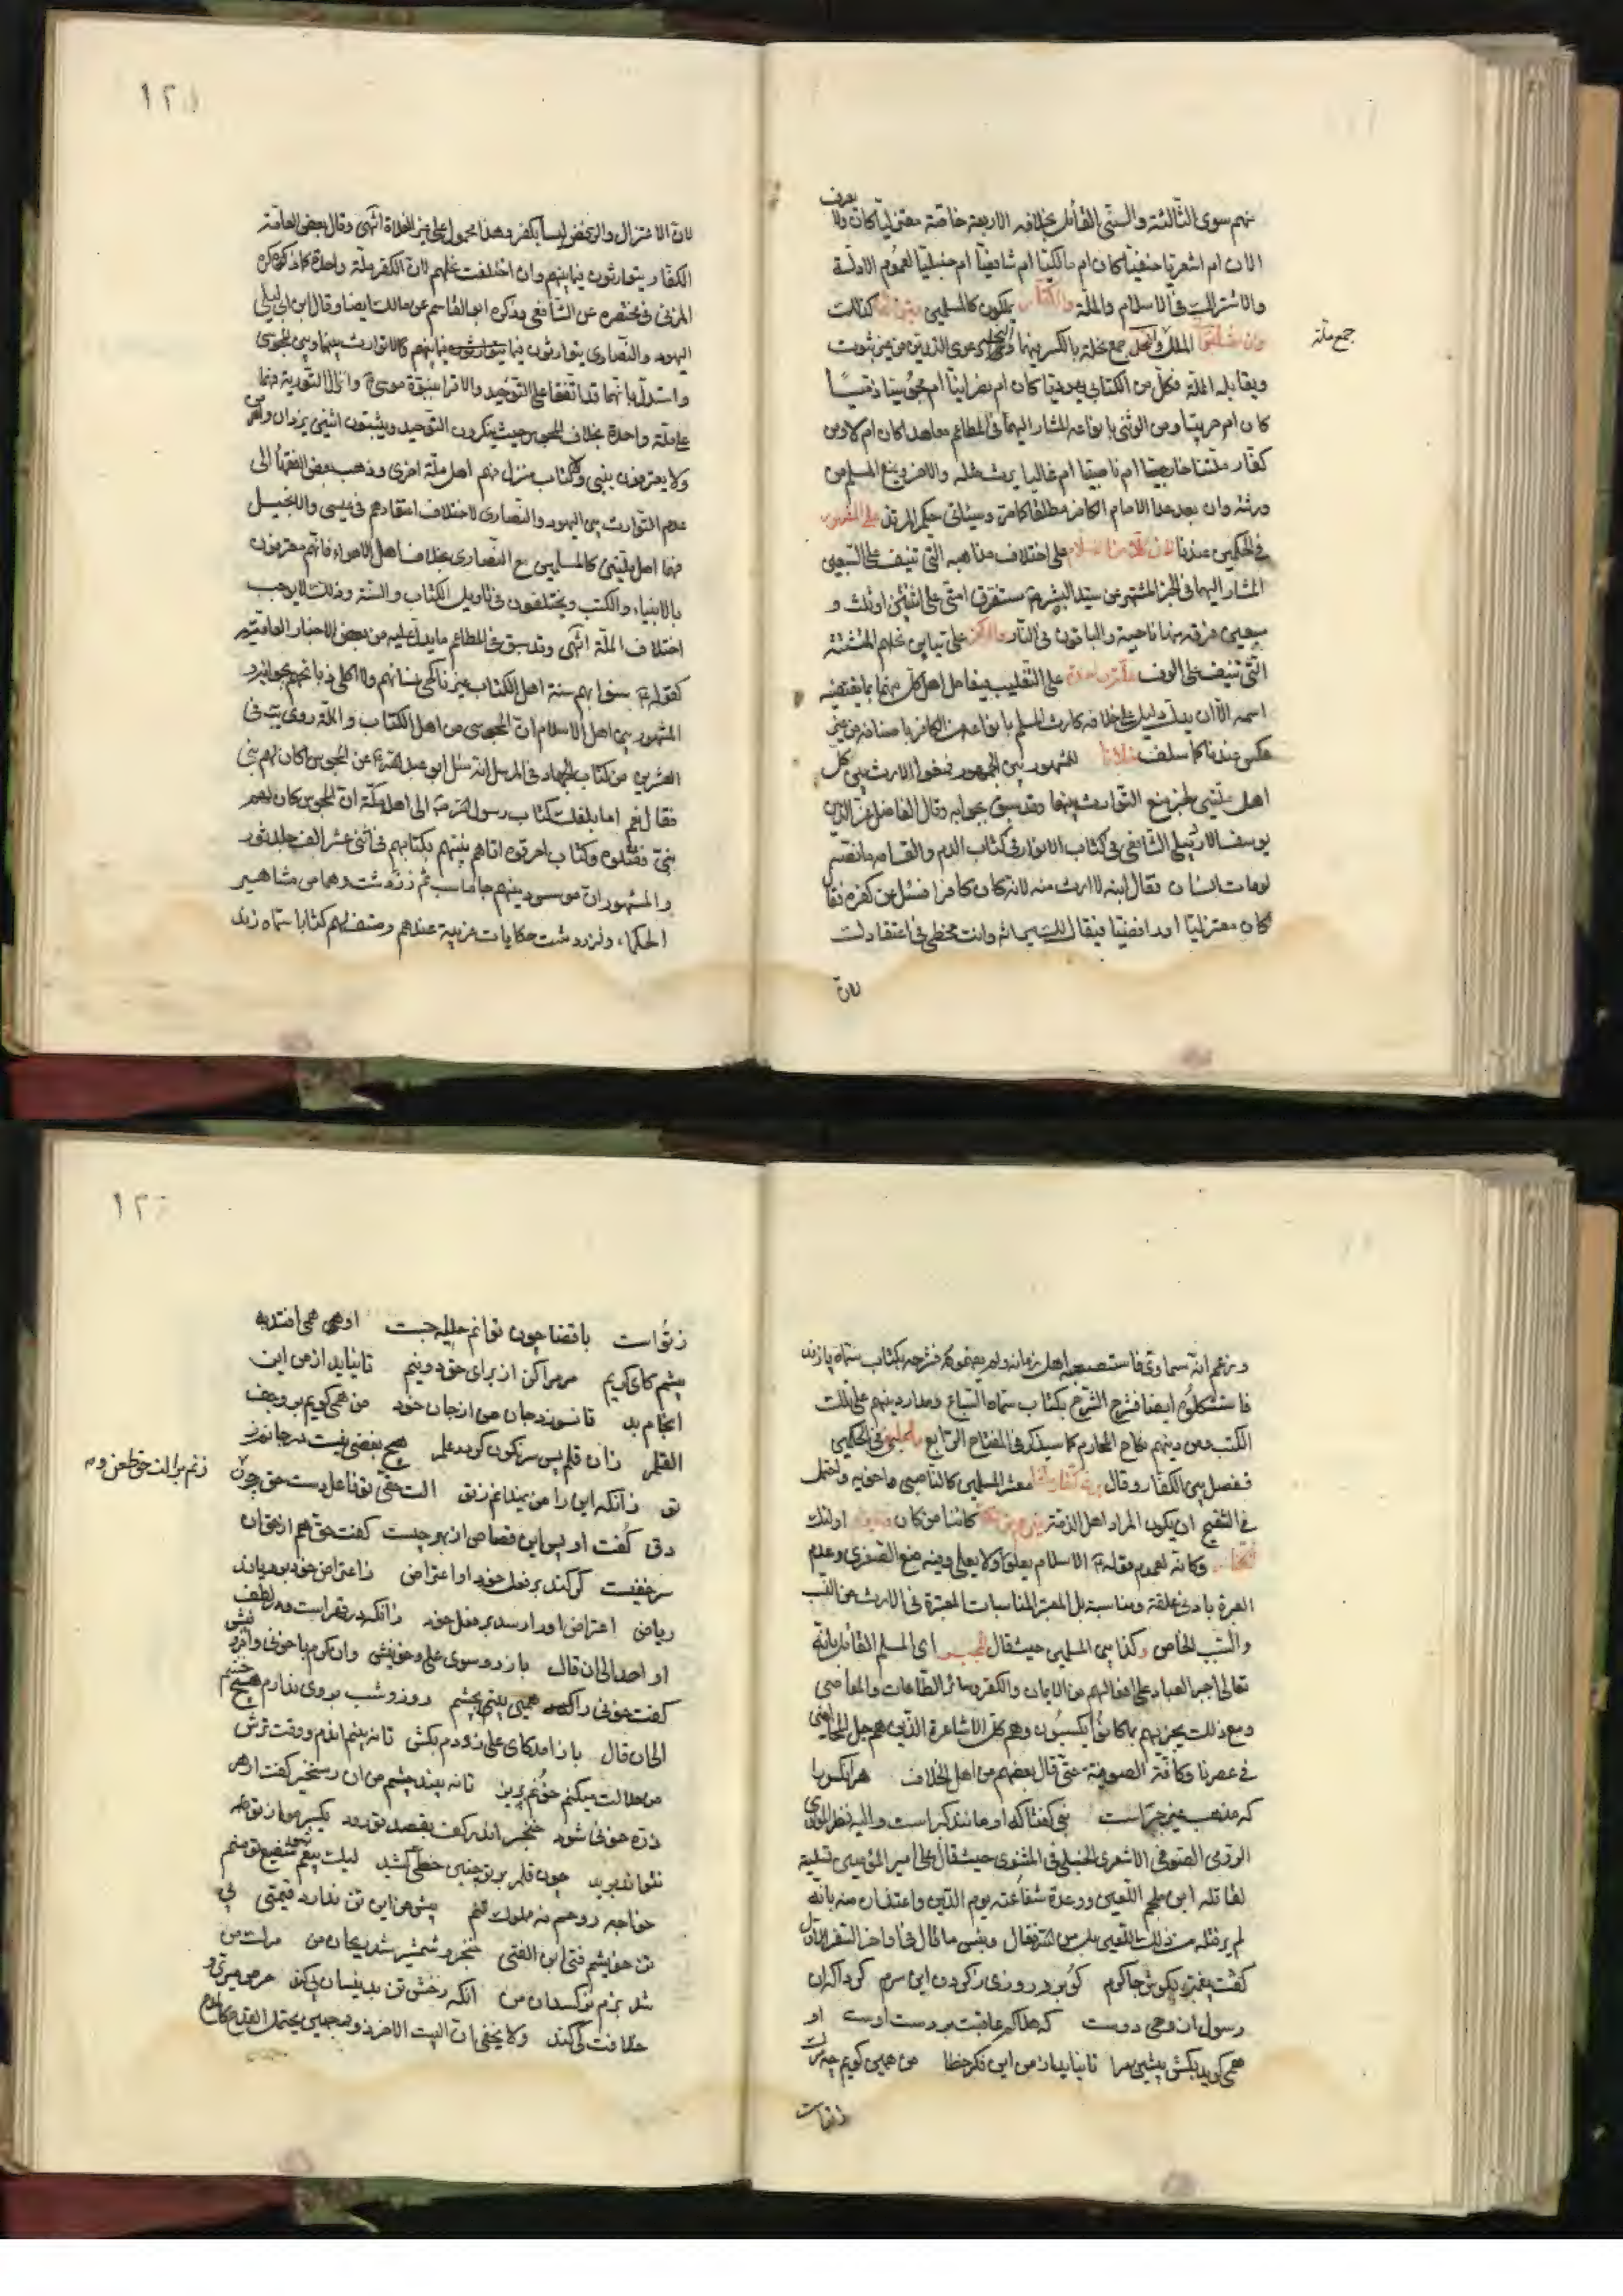 منهم سوى الثالثة والسنى القائل بخلافة الاربعة خاصة معتزليا كان ولا يعرف
الان ام اشعريا حنفيا كان ام مالكيا ام شافعيا ام حنبليا لعموم الادلة
والاشتراك فى الاسلام والملة والكفار يملكون كالمسلمين كذلك
وان اختلفوا الملل والنحل جمع نحلة بالكسر فيهما وهى الدعوى الدين من غير ثبوت
جمع ملة
ويقابله الملة فكل من الكتابى يهوديا كان ام نصرانيا ام مجوسيا ذميا
كان ام حربيا ومن الوثنى بانواعه المشار اليها فى المطاعم معاهدا كان ام لا ومن
كفار ملتنا خارجيا ام ناصبيا ام غاليا يرث مثله والاخر ويمنع المسلم من
ورثه وان بعد عدا الامام الكافر مطلقا كما مر وسياتى حكم المرتد على المشهور
فى الحكمين عندنا لان ملة الاسلام على اختلاف مذاهبه التى تنيف على السبعين
المشار اليها فى الخبر المشهور عن سيد البشر ستفترق امتى على اثنتين او ثلث و
سبعين فرقة منها ناجية والباقون فى النار والكفر على تباين نحلهم المتشتتة
التى تنيف على الوف ملة واحدة على التغليب فيعامل اهل كل منهما بما يقتضيه
اسمه الا ان يدل دليل على خلافه كارث المسلم بانواعه من الكافر باصنافه من غير
عكس عندنا كما سلف خلافا للمشهور بين الجمهور فمنعوا الارث بين كل
اهل ملتين لخبر منع التوارث بينهما وقد سبق بجوابه وقال الفاضل عز الدين
يوسف الاردبيلى الشافعى فى كتاب الانوار فى كتاب الدم والقسامة ما نصه
لو مات انسان فقال ابنه لا ارث منه لانه كان كافرا فسئل عن كفره فقال
كان معتزليا او رافضيا فيقال لك ميراثه وانت مخطئ فى اعتقادك
لان
١٢٥
لان الاعتزال والرفض ليسا بكفر وهذا محمول على غير الغلاة انتهى وقال بعض العامة
الكفار يتوارثون فيما بينهم وان اختلفت نحلهم لان الكفر ملة واحدة كما ذكره
المزنى فى مختصره عن الشافعى وذكره ابو القاسم عن مالك ايضا وقال ابن ابى ليلى
اليهود والنصارى يتوارثون فيما بينهم كالا توارث بينهما وبين المجوسى
واستدل بانهما قد اتفقا على التوحيد والاقرار بنبوة موسى وانزال التورية فهما
على ملة واحدة بخلاف المجوس حيث ينكرون التوحيد ويثبتون اثنين يزدان واهرمن
ولا يعترفون بنبى ولا كتاب منزل فهم اهل ملة اخرى وذهب بعض الفقهاء الى
عدم التوارث بين اليهود والنصارى لاختلاف اعتقادهم فى عيسى والانجيل
فهما اهل ملتين كالمسلمين مع النصارى بخلاف اهل الاهواء فانهم معترفون
بالانبياء والكتب ويختلفون فى تاويل الكتاب والسنة وذلك لا يوجب
اختلاف الملة انتهى وقد سبق فى المطاعم ما يدل عليه من بعض الاخبار العامية
كقوله ع سنوا بهم سنة اهل الكتاب غير ناكحى نسائهم ولا اكلى ذبائحهم
المشهور بين اهل الاسلام ان المجوسى من اهل الكتاب والملة روى يب فى
العشرين من كتاب الجهاد فى المرسل انه سئل ابو عبد الله ع عن المجوس اكان لهم نبى
فقال نعم اما بلغك كتاب رسول الله ص الى اهل مكة ان المجوس كان لهم
نبى فقتلوه وكتاب احرقوه اتاهم نبيهم بكتابهم فى اثنى عشر الف جلد ثور
والمشهور ان موسس دينهم جاماسب ثم زردشت وهما من مشاهير
الحكماء ولزردشت حكايات غريبة عندهم وصنف لهم كتابا سماه زند
وزعم انه سماوى فاستصعبه اهل زمانه ولم يفهموه فشرحه بكتاب سماه پازند
فاستشكلوه ايضا فشرح الشرح بكتاب سماه ومدار دينهم على تلك
الكتب ومن دينهم نكاح المحارم كما سيذكر فى المفتاح الرابع فى الحكمين
ففصل بين الكفار وقال يرث كفار ملتنا معشر المسلمين كالناصبى واخويه واحتمل
فى التنقيح ان يكون المراد اهل الذمة كائنا من كان اولئك
وكانه لعموم قوله ع الاسلام يعلو ولا يعلى وفيه منع الصغرى وعدم
العبرة بادنى علقة ومناسبة بل المعتبر المناسبات المعتبرة فى الارث من النسب
والسبب الخاص وكذا بين المسلمين حيث قال المجبر اى المسلم القائل بانه
تعالى اجبر العباد على افعالهم من الايمان والكفر وسائر الطاعات والمعاصى
ومع ذلك يجزيهم بما كانوا يكسبون وهم كل الاشاعرة الذين هم جل المخالفين
فى عصرنا وكافة الصوفية حتى قال بعضهم من اهل الخلاف هر انكس را
كه مذهب غير جبر است نبى گفتا كه او مانند گبر است واليه نظر المولوى
الرومى الصوفى الاشعرى الحنبلى فى المثنوى حيث قال على امير المؤمنين تسلية
لقاتله ابن ملجم اللعين ووعده شفاعته يوم الدين واعتذار منه بانه
لم يرد قتله من ذلك اللعين بل من الله تعالى وبئس ما قال فى اواخر الدفتر الاول
گفت پيغمبر بگوش چاكرم كو برد روزى ز گردن اين سرم كرد آگه آن
رسول از وحى دوست كه هلاكم عاقبت بر دست اوست او
همى گويد بكش پيشين مرا تا نيايد از من اين فكر خطا من همى گويم چو مرگ
ز تواست
زتواست با قضا چون توانم حيله جست او همى افتد به
پيشم كاى كريم مر مرا كن از براى حق دونيم تا نيايد از من اين
انجام بد تا نسوزد جان من از جان خود من همى گويم برو جف
القلم زان قلم بس سرنگون گردد علم هيچ بغضى نيست در جانم ز
تو زانكه اين را من نميدانم ز تو الت حقى تو فاعل دست حق چون
زنم بر الت حق طعن و
دق گفت او پس اين قصاص از بهر چيست گفت هم از حق آن
سر خفيست گر كند بر فعل خود او اعتراض ز اعتراض خود بروياند
رياض اعتراض او را رسد بر فعل خود زانكه در قهر است و در لطف
او احد الى ان قال باز رو سوى على و خونيش وان كرم با خونى و افزونيش
گفت خونى را همى بينم بچشم روز و شب بر وى ندارم هيچ خشم
الى ان قال باز آمد كاى على زودم بكش تا نه بينم آن دم و وقت ترش
من حلالت ميكنم خونم بريز تا نه بيند چشم من آن رستخيز گفت ار هر
ذره خونى شود خنجر اندر كف بقصد تو رود يكسر مو از تو
نتواند بريد چون قلم بر تو چنين خطى كشيد ليك بيغم شو شفيع تو منم
خواجه روحم نه مملوك تنم پيش من اين تن ندارد قيمتى بى
تن خويشم فتى ابن الفتى خنجر و شمشير شد ريحان من مرگ من
شد بزم و نرگسدان من آنكه رخش تن بدينسان پى كند حرص ميرى و
خلافت كى كند ولا يخفى ان البيت الاخر ذو وجهين يحتمل القدح